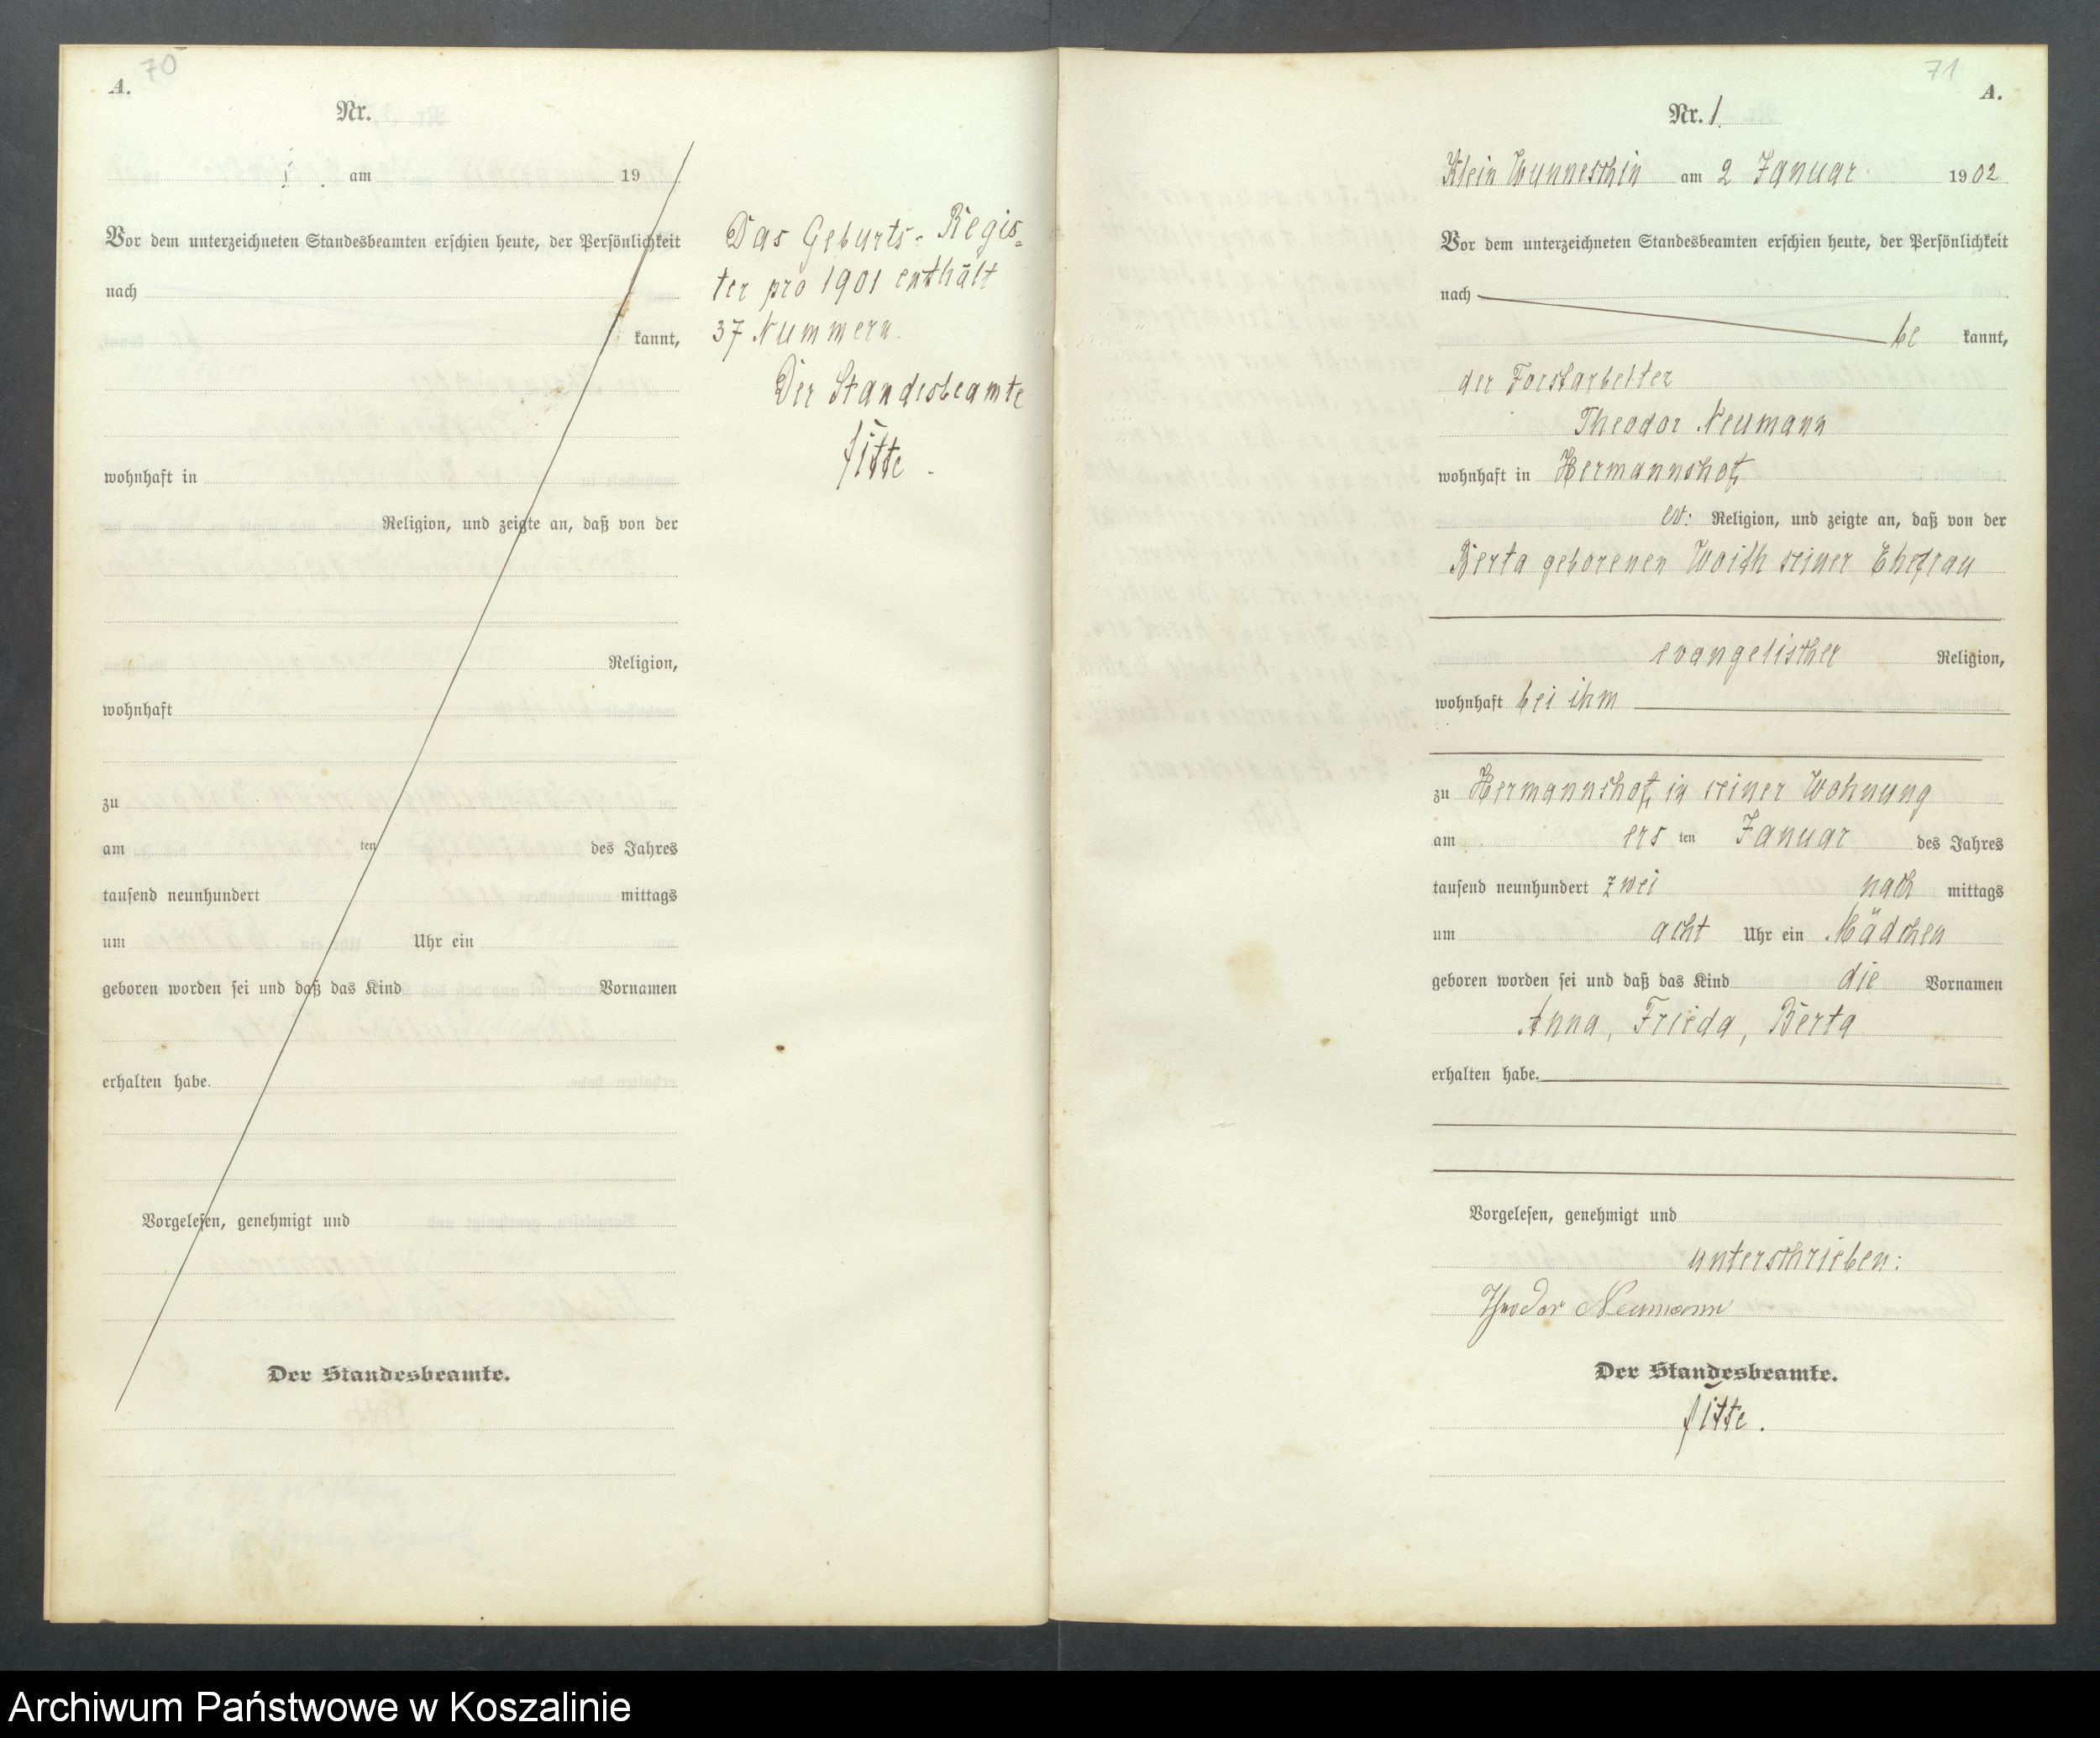 A.
70
Nr.
am 19
Vor dem unterzeichneten Standesbeamten erschien heute, der Persönlichkeit
nach
kannt,
wohnhaft in
Religion, und zeigte an, daß von der
Religion,
wohnhaft
zu
am ten des Jahres
tausend neunhundert mittags
um Uhr ein
geboren worden sei und daß das Kind Vornamen
erhalten habe.
Vorgelesen, genehmigt und
Der Standesbeamte.
Das Geburts-Regis=
ter pro 1901 enthält
37 Nummern.
Der Standesbeamte
71
A.
Nr. 1.
Klein Wunneschin am 2 Januar 1902
Vor dem unterzeichneten Standesbeamten erschien heute, der Persönlichkeit
nach
be kannt,
der Forstarbeiter
Theodor Neumann
wohnhaft in Hermannshof,
ev: Religion, und zeigte an, daß von der
Berta geborenen Woith seiner Ehefrau
evangelischer Religion,
wohnhaft bei ihm
zu Hermannshof, in seiner Wohnung
am ers ten Januar des Jahres
tausend neunhundert zwei nach mittags
um acht Uhr ein Mädchen
geboren worden sei und daß das Kind die Vornamen
Anna, Frieda, Berta
erhalten habe.
Vorgelesen, genehmigt und
unterschrieben:
Theodor Neumann
Der Standesbeamte.
Archiwum Państwowe w Koszalinie